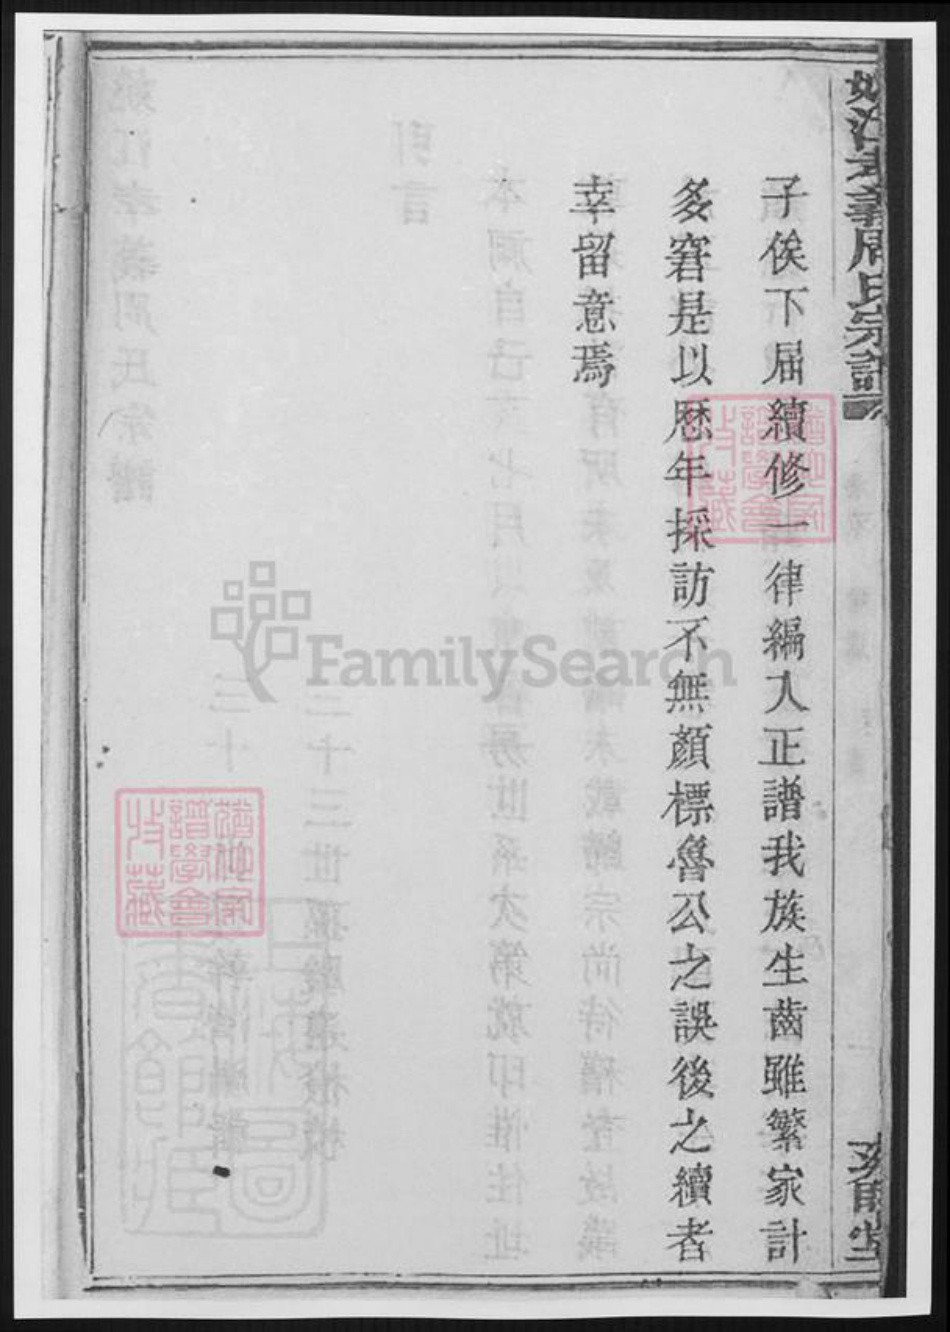 姚江孝義周氏宗譜
子俟下届續修一律編入正譜我族生齒雖繁家計
多窘是以歷年採訪不無顏標魯公之誤後之續者
幸留意焉
FamilySearch